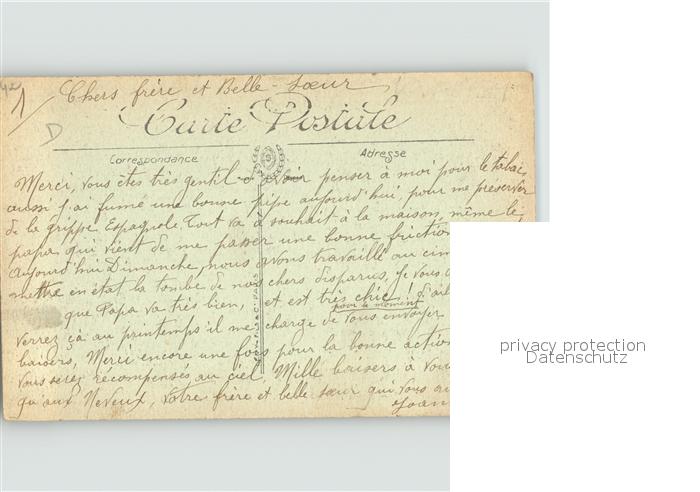 1/ Chers frère et Belle-Sœur
D
Carte Postale
Correspondance
Adresse
Merci, vous êtes très gentil d'avoir penser à moi pour le tabac,
aussi j'ai fumé une bonne pipe aujourd'hui, pour me préserver
de la grippe Espagnole. Tout va à souhait à la maison, même le
papa qui vient de me passer une bonne friction
Aujourd'hui Dimanche, nous avons travaillé au cim
mettre en état la tombe de nos chers disparus, je vous
que Papa va très bien, et est très chic!
pour le moment
verrez çà au printemps il me charge de vous envoyer
baisers, Merci encore une fois pour la bonne action
vous serez récompensés au ciel, Mille baisers à vou
qu'aux Neveux, votre frère et belle sœur qui vous
privacy protection
Datenschutz